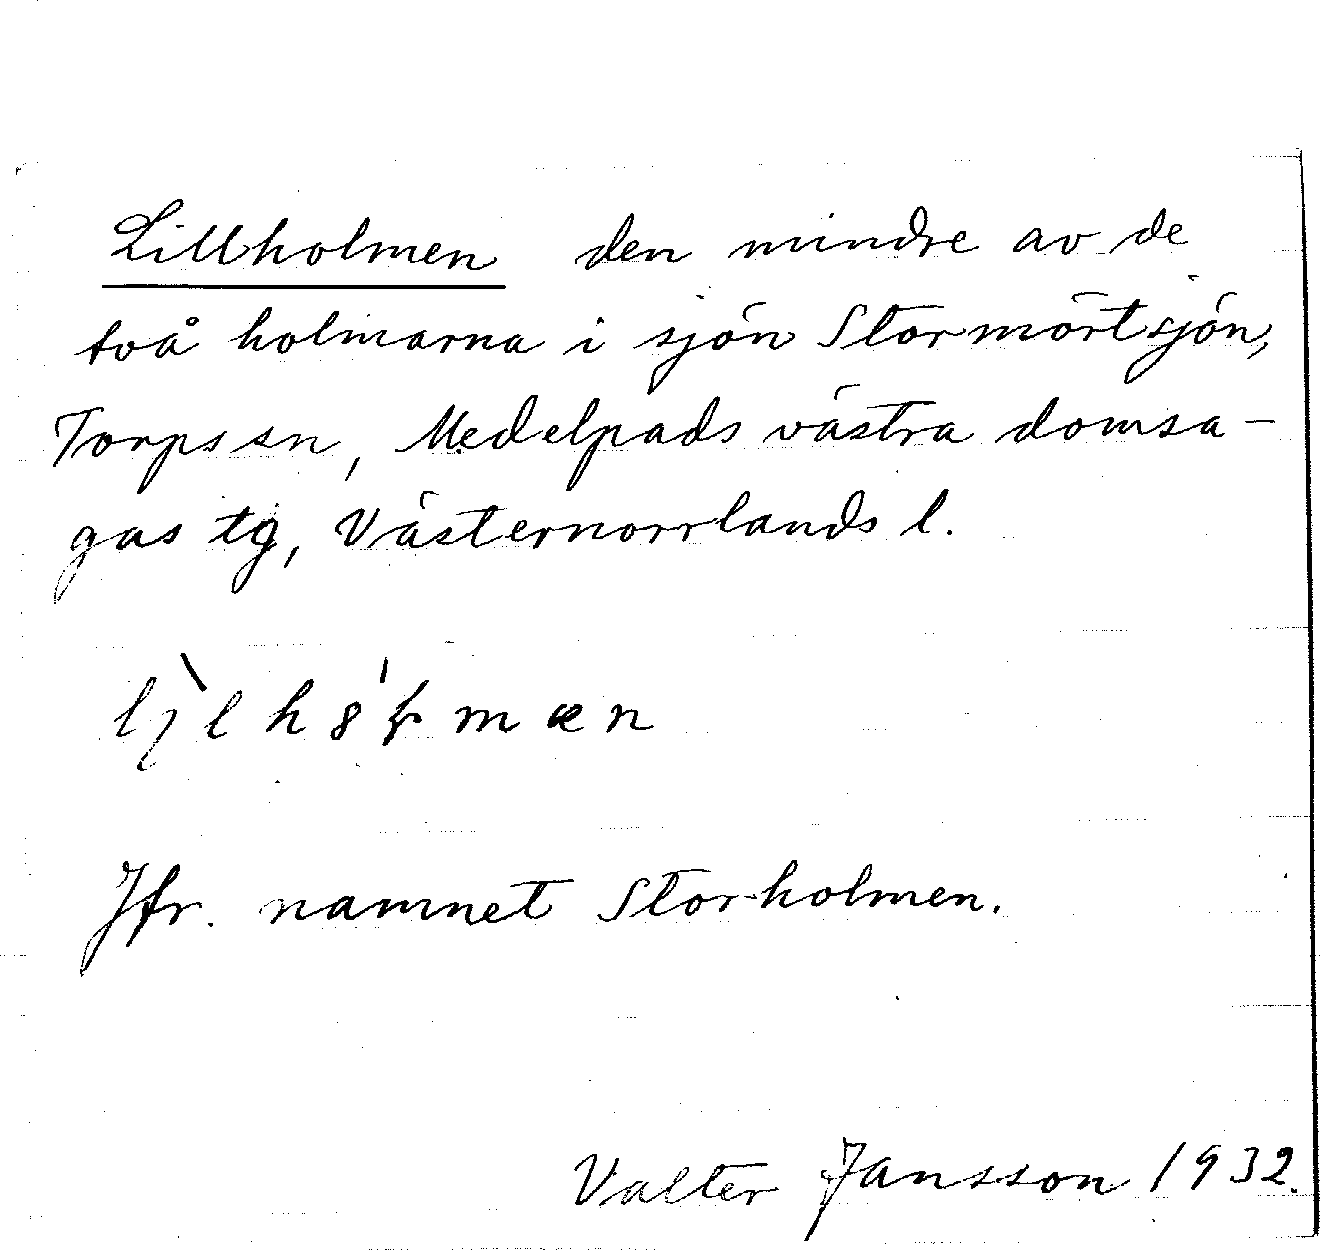 Lillholmen den mindre av de
två holmarna i sjön Stormörtsjön,
Torps sn, Medelpads västra domsa-
gas tg, Västernorrlands l.
Jfr. namnet Storholmen.
Valter Jansson 1932.